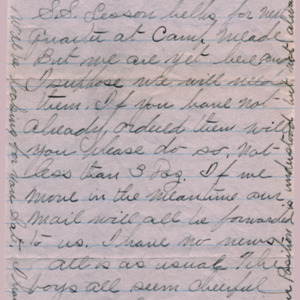 S.S. Lesson helps for next
Quarter at Camp Meade
But we are yet here and
I suppose we will need
them. If you have not
already ordered them will
you please do so. Not
less than 3 Doz. If we
move in the meantime our
mail will all be forwarde
to us. I have no news
all is as usual. The
boys all seem cheerful
Position is understood but, not alwa
looking for